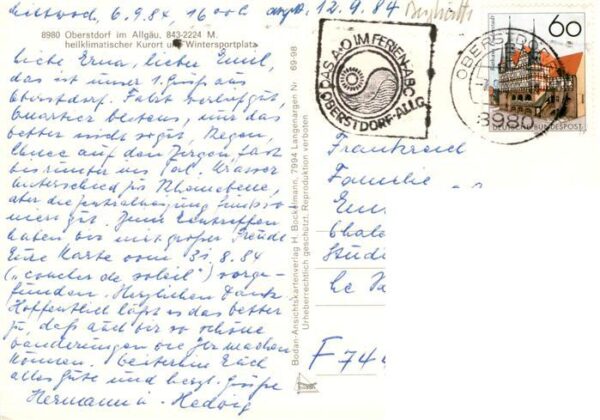 Mittwoch, 6.9.84, 16.00h
12.9.84
8980 Oberstdorf im Allgäu, 843-2224 M.
heilklimatischer Kurort und Wintersportplatz
Liebe Erna, lieber Emil,
das ist unser 1. Gruß aus
Oberstdorf. Fahrt verlief gut,
Quartier bestens, nur das
Wetter nicht so gut, Regen,
Schnee auf den Bergen, fast
bis runter ins Tal. Krasser
Unterschied zu Rheinebene,
aber die Zentralheizung funktio-
niert gut. Zum Eintreffen
haben wir mit großer Freude
Eure Karte vom 31.8.84
("coucher de soleil") vorge-
funden. Herzlichen Dank
Hoffentlich läßt es das Wetter
zu, daß auch wir so schöne
Wanderungen wie Ihr machen
können. Weiterhin Euch
alles Gute und herzl. Grüße
Hermann u. Hedwig
Bodan-Ansichtskartenverlag H. Bockelmann, 7994 Langenargen Nr. 69-98
Urheberrechtlich geschützt. Reproduktion verboten
DAS A+O IM FERIEN-ABC
OBERSTDORF-ALLG.
OBERSTDORF
8980
60
DEUTSCHE BUNDESPOST
Frankreich
Familie
Stud
F 744